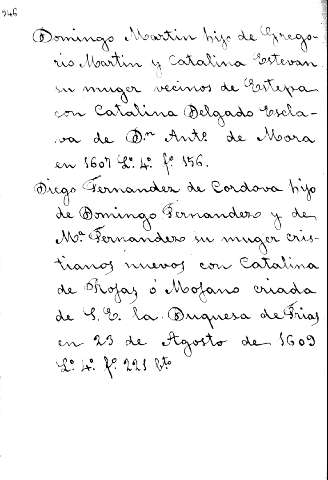 946
Domingo Martin hijo de Grego-
rio Martin y Catalina Estevan
su muger vecinos de Estepa
con Catalina Delgado Escla-
va de D.ⁿ Ant.º de Mora
en 1607 L.º 4.º f.º 156.
Diego Fernandez de Cordova hijo
de Domingo Fernandez y de
M.ª Fernandez su muger cris-
tianos nuevos con Catalina
de Rojas ó Mojano criada
de S. E. la Duquesa de Frias
en 23 de Agosto de 1609
L.º 4.º f.º 221 b.to